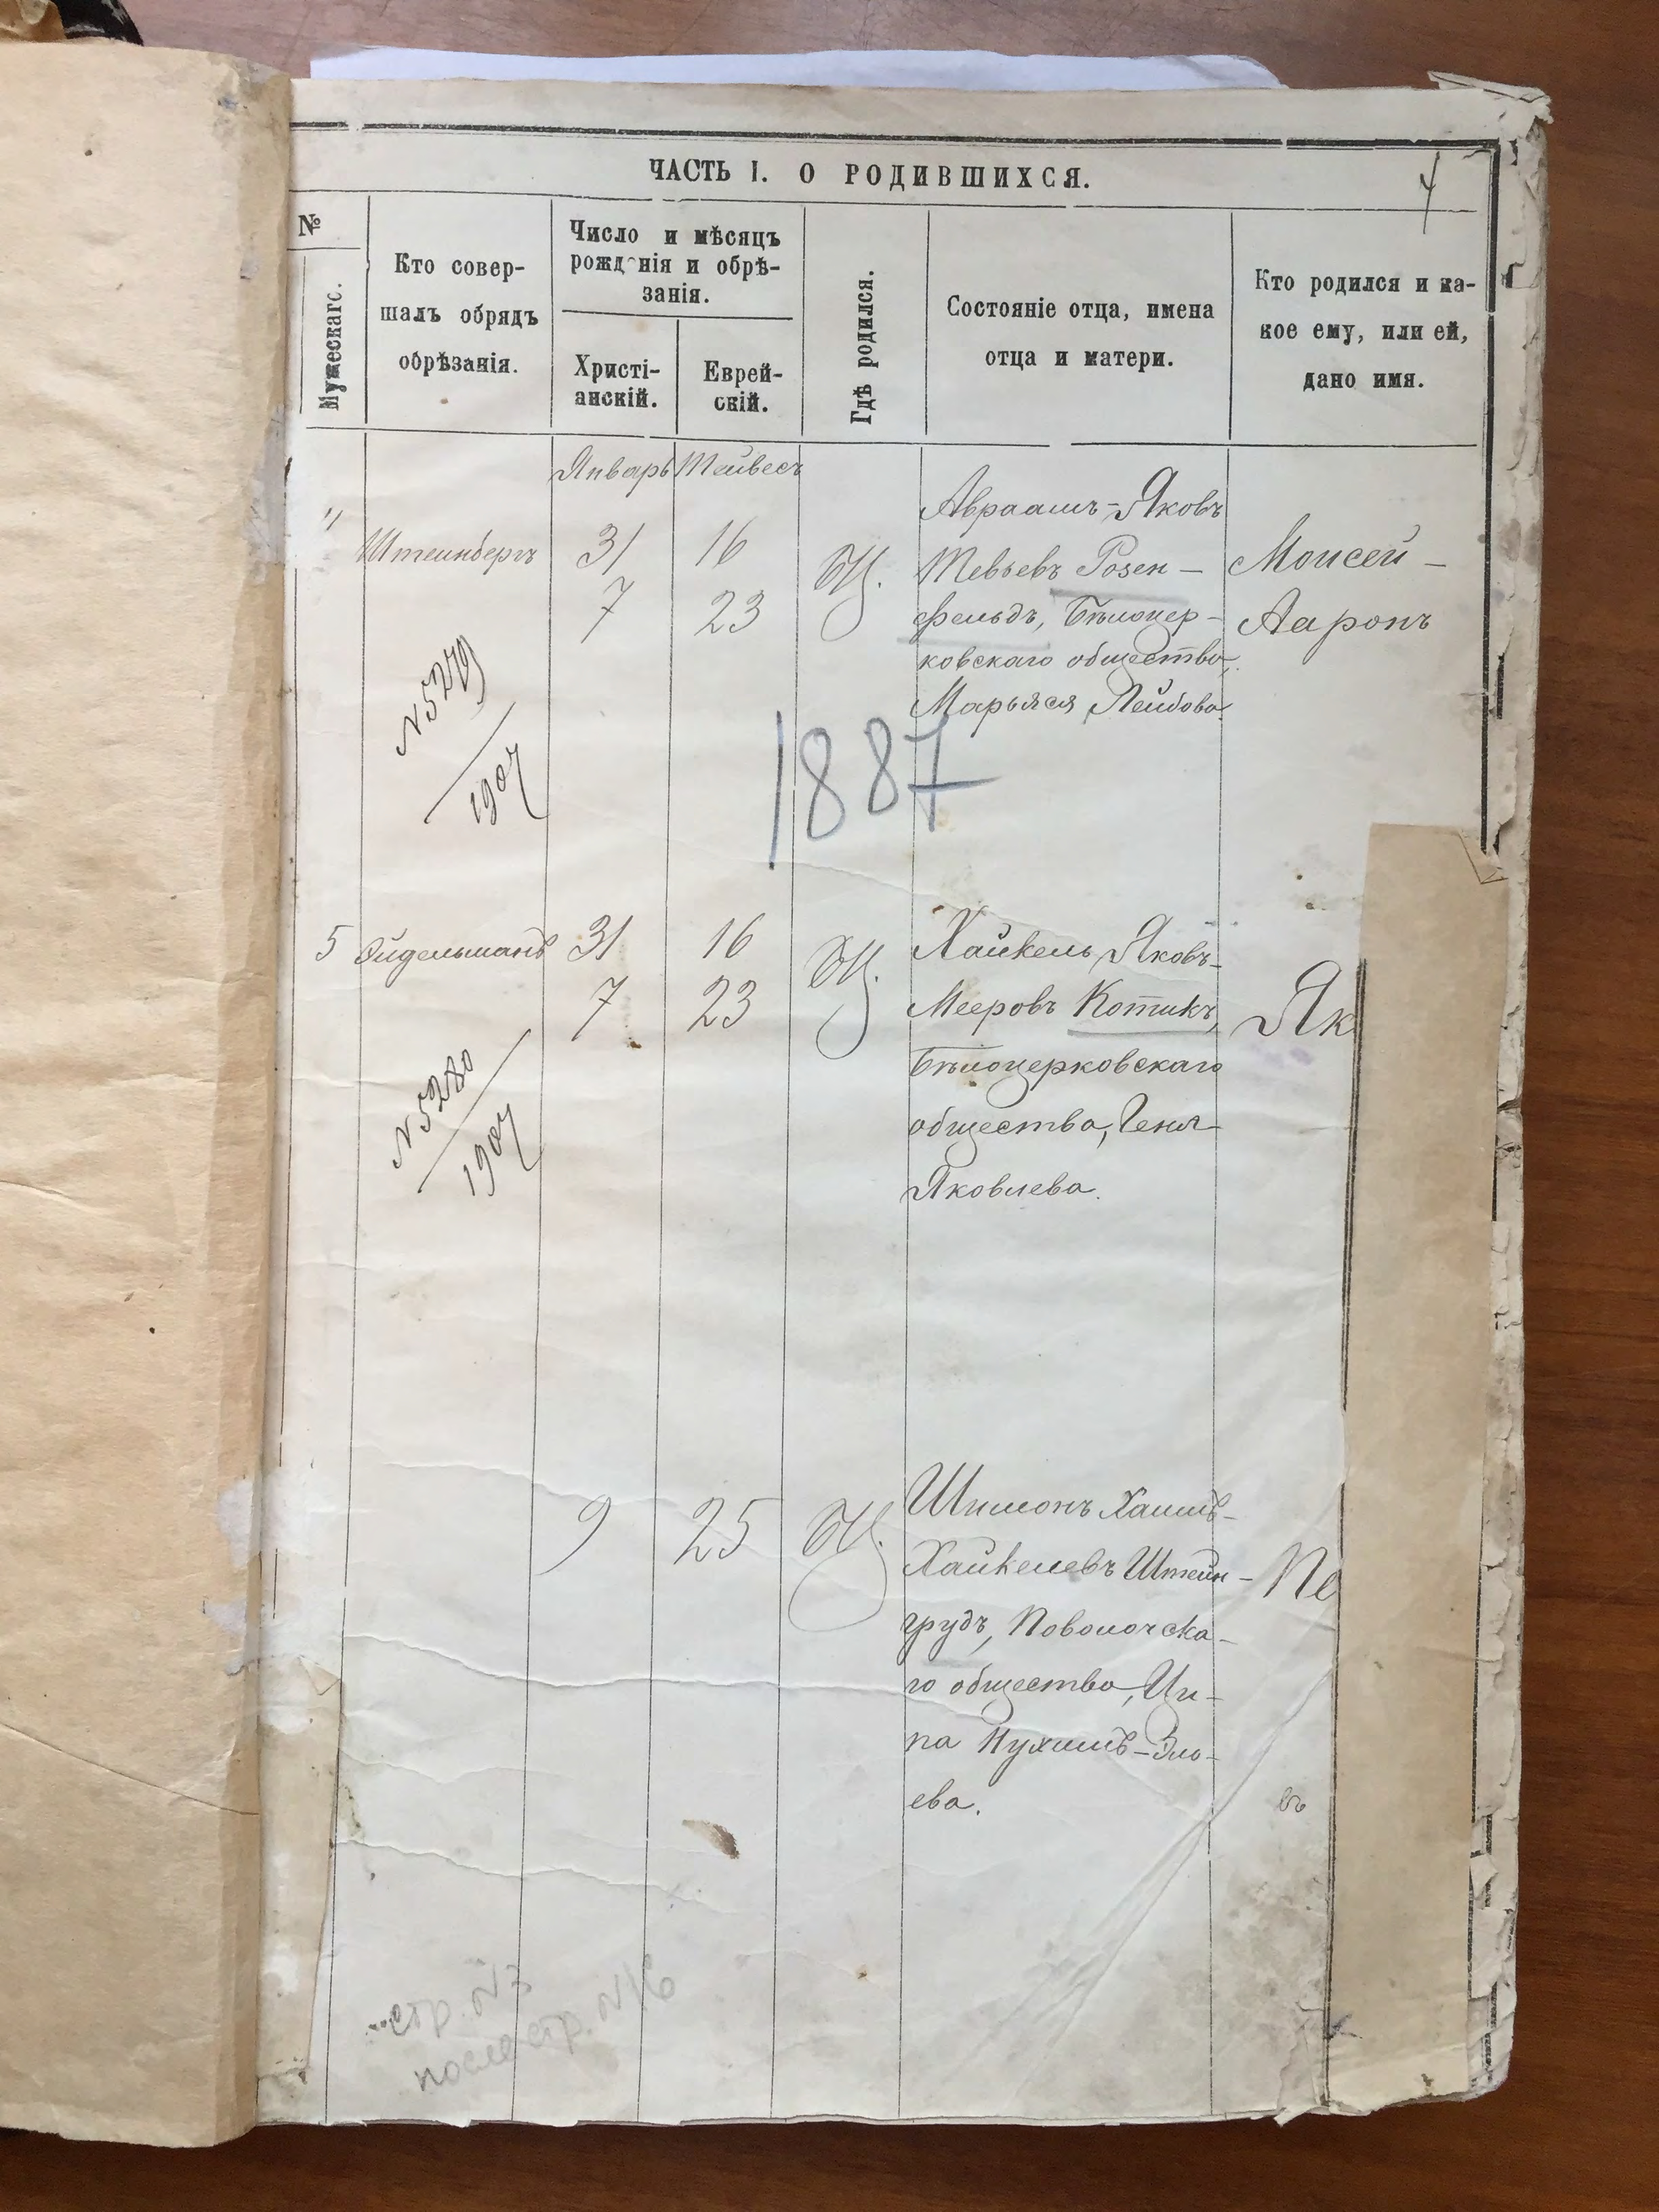 ЧАСТЬ I. О РОДИВШИХСЯ.
4
№
Мужескаго.
Кто совер-
шалъ обрядъ
обрѣзанія.
Число и мѣсяцъ
рожденія и обрѣ-
занія.
Христі-
анскій.
Еврей-
скій.
Гдѣ родился.
Состояніе отца, имена
отца и матери.
Кто родился и ка-
кое ему, или ей,
дано имя.
Январь Тейвесъ
"
Штеинбергъ
31 16
7 23
БЦ.
Авраамъ-Яковъ
Тевьевъ Розен-
фельдъ, Бѣлоцер-
ковскаго общества,
Марьяся Лейбова.
Моисей -
Ааронъ
N 5279
1907
1887
5 Эйдельманъ 31 16
7 23
БЦ.
Хайкель Яковъ-
Мееровъ Котикъ,
Бѣлоцерковскаго
общества, Геня
Яковлева.
Як
N 5280
1907
9 25
БЦ.
Шимонъ Хаимъ-
Хайкелевъ Штейн-
грудъ,
го общества, Ци-
па Нухимъ-
ева.
Пе
въ
стр. N 3
после стр. N 16